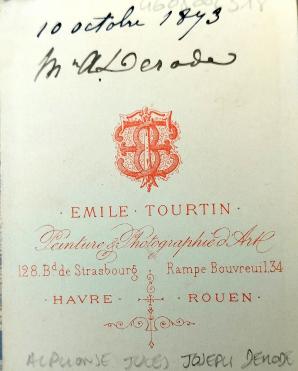 10 octobre 1873
Mr A. Derode
· EMILE · TOURTIN ·
Peinture & Photographie d'Art
128. Bd de Strasbourg Rampe Bouvreuil. 34
· HAVRE · ROUEN ·
ALPHONSE JULES JOSEPH DERODE